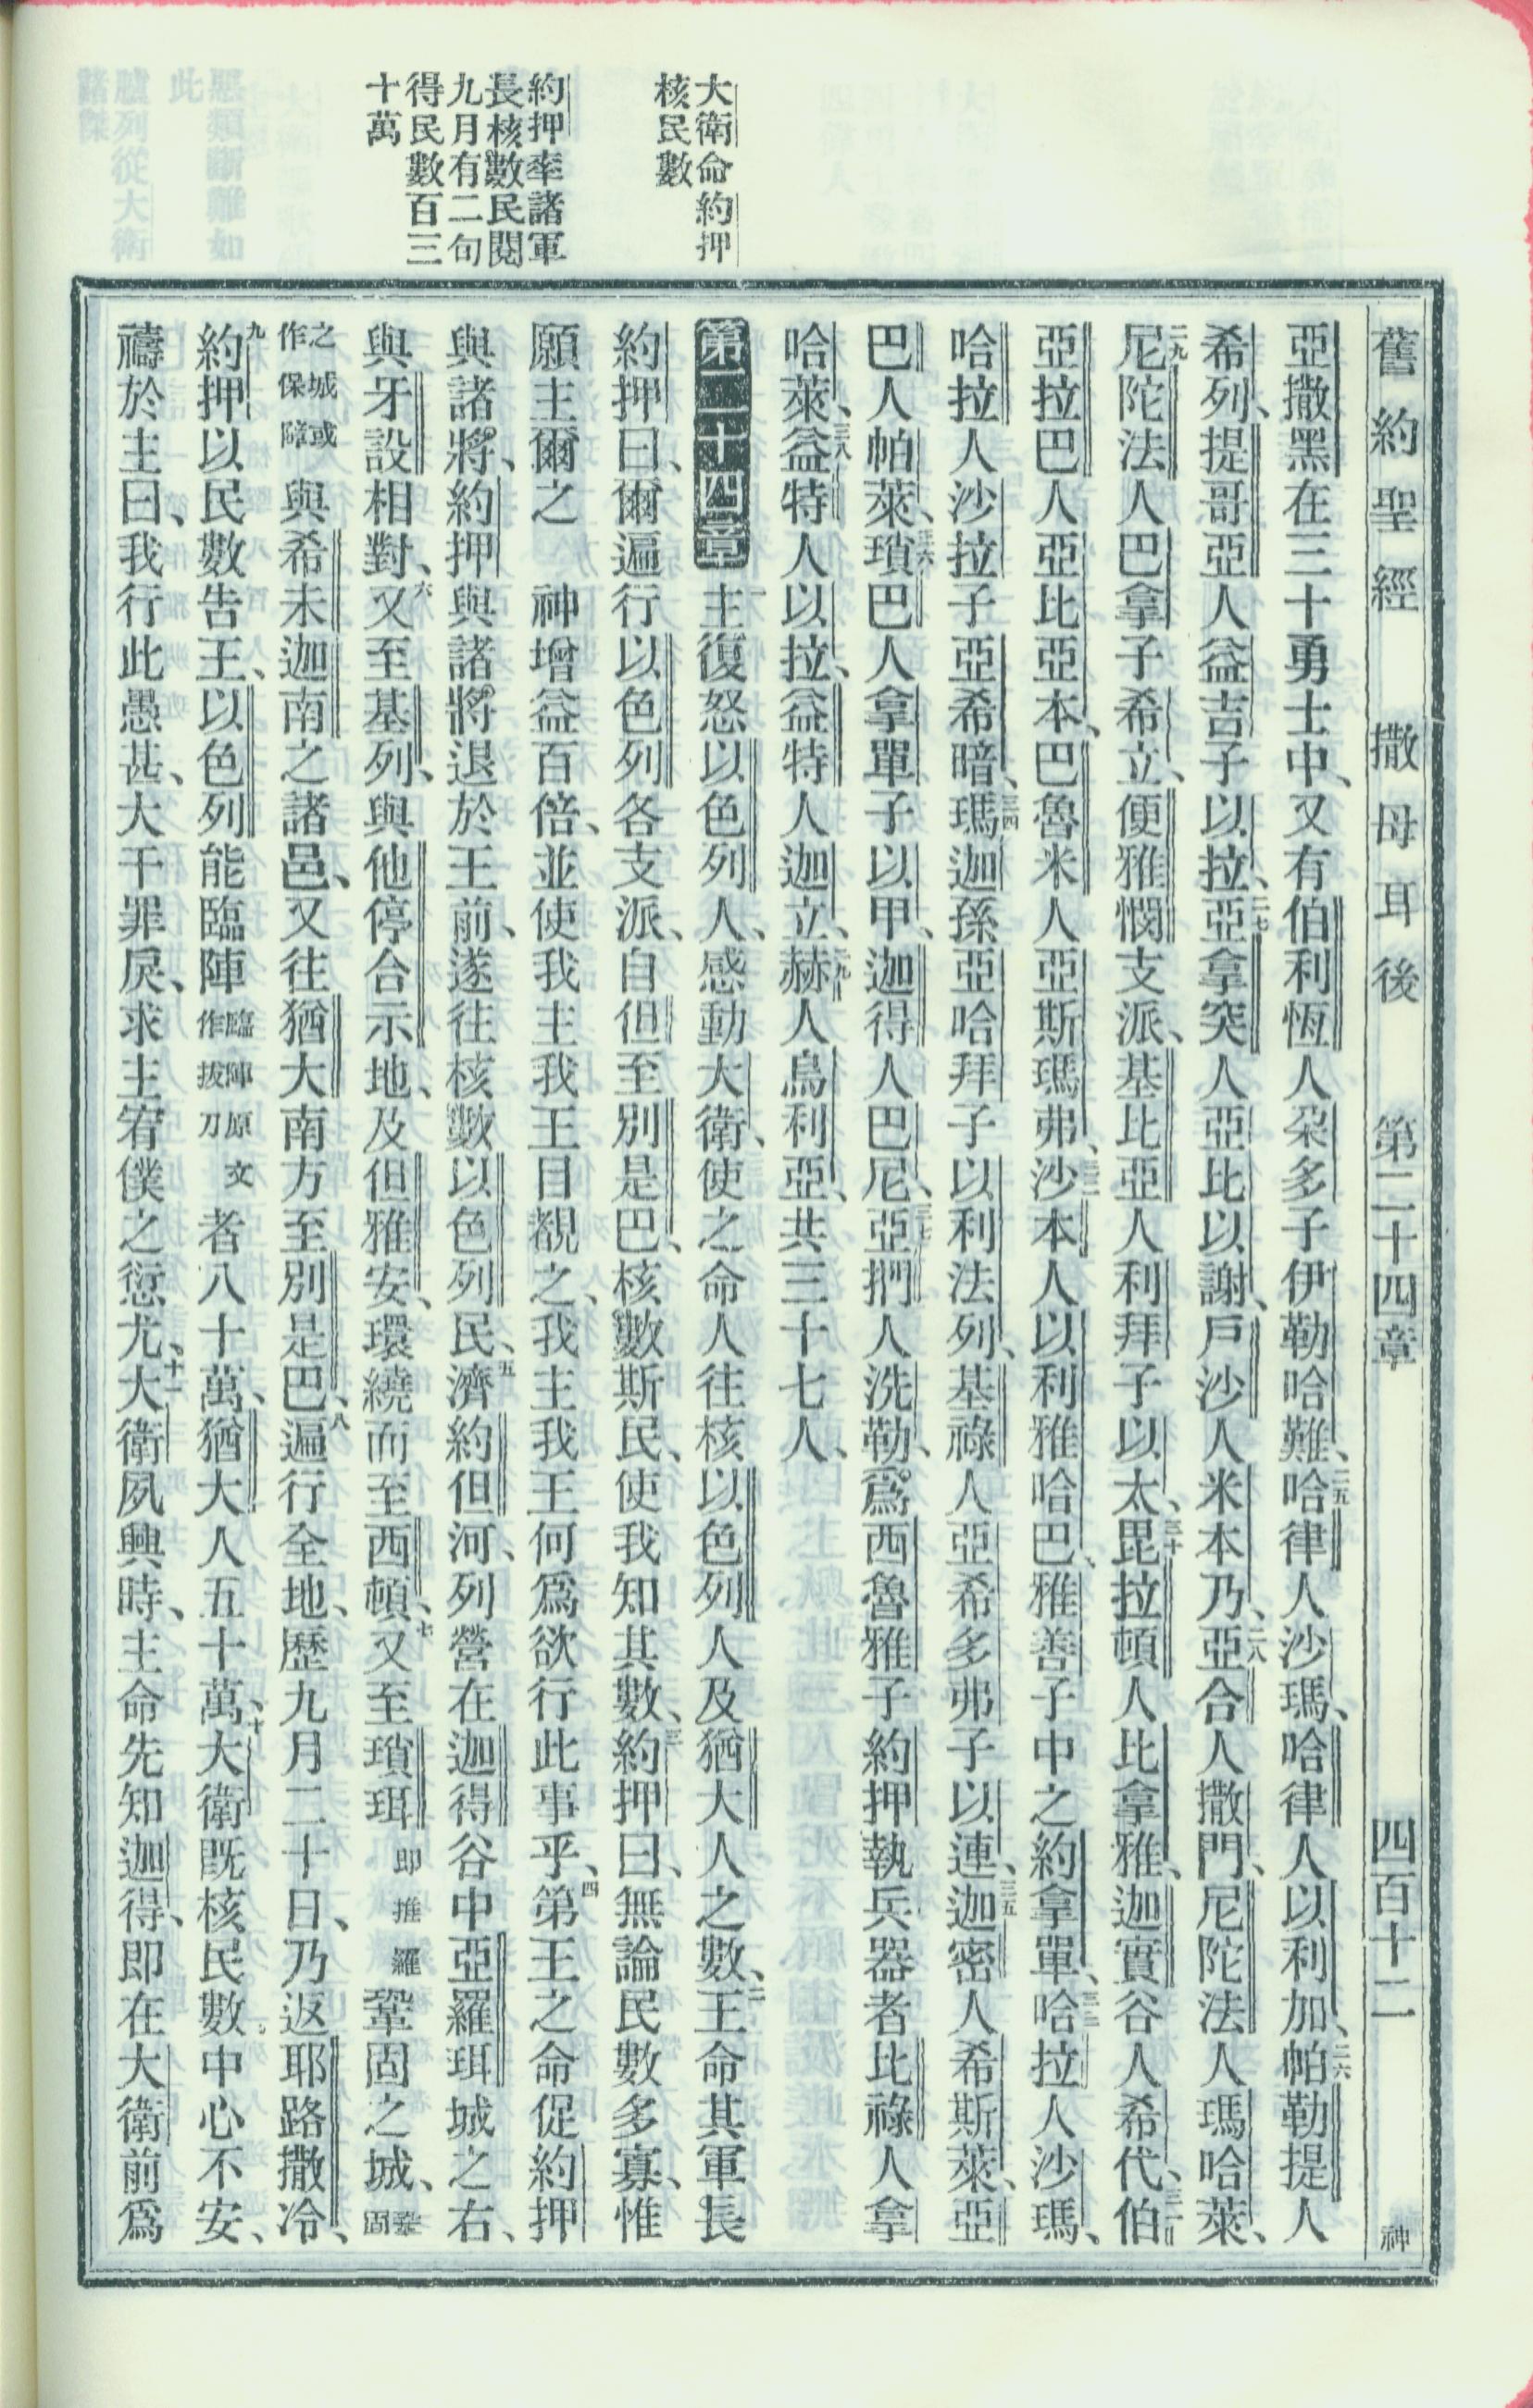 舊約聖經 撒母耳後 第二十四章 四百十二 神
亞撒黑在三十勇士中、又有伯利恆人朶多子伊勒哈難、二五哈律人沙瑪、哈律人以利加、二六帕勒提人
希列、提哥亞人益吉子以拉、二七亞拿突人亞比以謝、戶沙人米本乃、二八亞合人撒門、尼陀法人瑪哈萊、
二九尼陀法人巴拿子希立、便雅憫支派、基比亞人利拜子以太、三十毘拉頓人比拿雅、迦實谷人希代、三一伯
亞拉巴人亞比亞本、巴魯米人亞斯瑪弗、三二沙本人以利雅哈巴、雅善子中之約拿單、三三哈拉人沙瑪、
哈拉人沙拉子亞希暗、三四瑪迦孫亞哈拜子以利法列、基祿人亞希多弗子以連、三五迦密人希斯萊、亞
巴人帕萊、三六瑣巴人拿單子以甲、迦得人巴尼、三七亞捫人洗勒、爲西魯雅子約押執兵器者比祿人拿
哈萊、三八益特人以拉、益特人迦立、三九赫人烏利亞、共三十七人、
大衛命約押
核民數
第二十四章 一主復怒以色列人、感動大衛、使之命人往核以色列人及猶大人之數、二王命其軍長
約押曰、爾遍行以色列各支派、自但至別是巴、核數斯民、使我知其數、三約押曰、無論民數多寡、惟
願主爾之 神增益百倍、並使我主我王目覩之、我主我王何爲欲行此事乎、四第王之命促約押
與諸將、約押與諸將退於王前、遂往核數以色列民、五濟約但河、列營在迦得谷中亞羅珥城之右、
約押率諸軍
長核數民閱
九月有二旬
得民數百三
十萬
與牙設相對、六又至基列、與他停合示地、及但雅安、環繞而至西頓、七又至瑣珥卽推羅鞏固之城、鞏固
之城或作保障與希未迦南之諸邑、又往猶大南方至別是巴、八遍行全地、歷九月二十日、乃返耶路撒冷、
九約押以民數告王、以色列能臨陣臨陣原文作拔刀者八十萬、猶大人五十萬、十大衛旣核民數中心不安、
禱於主曰、我行此愚甚、大干罪戾、求主宥僕之愆尤、十一大衛夙興時、主命先知迦得、卽在大衛前爲